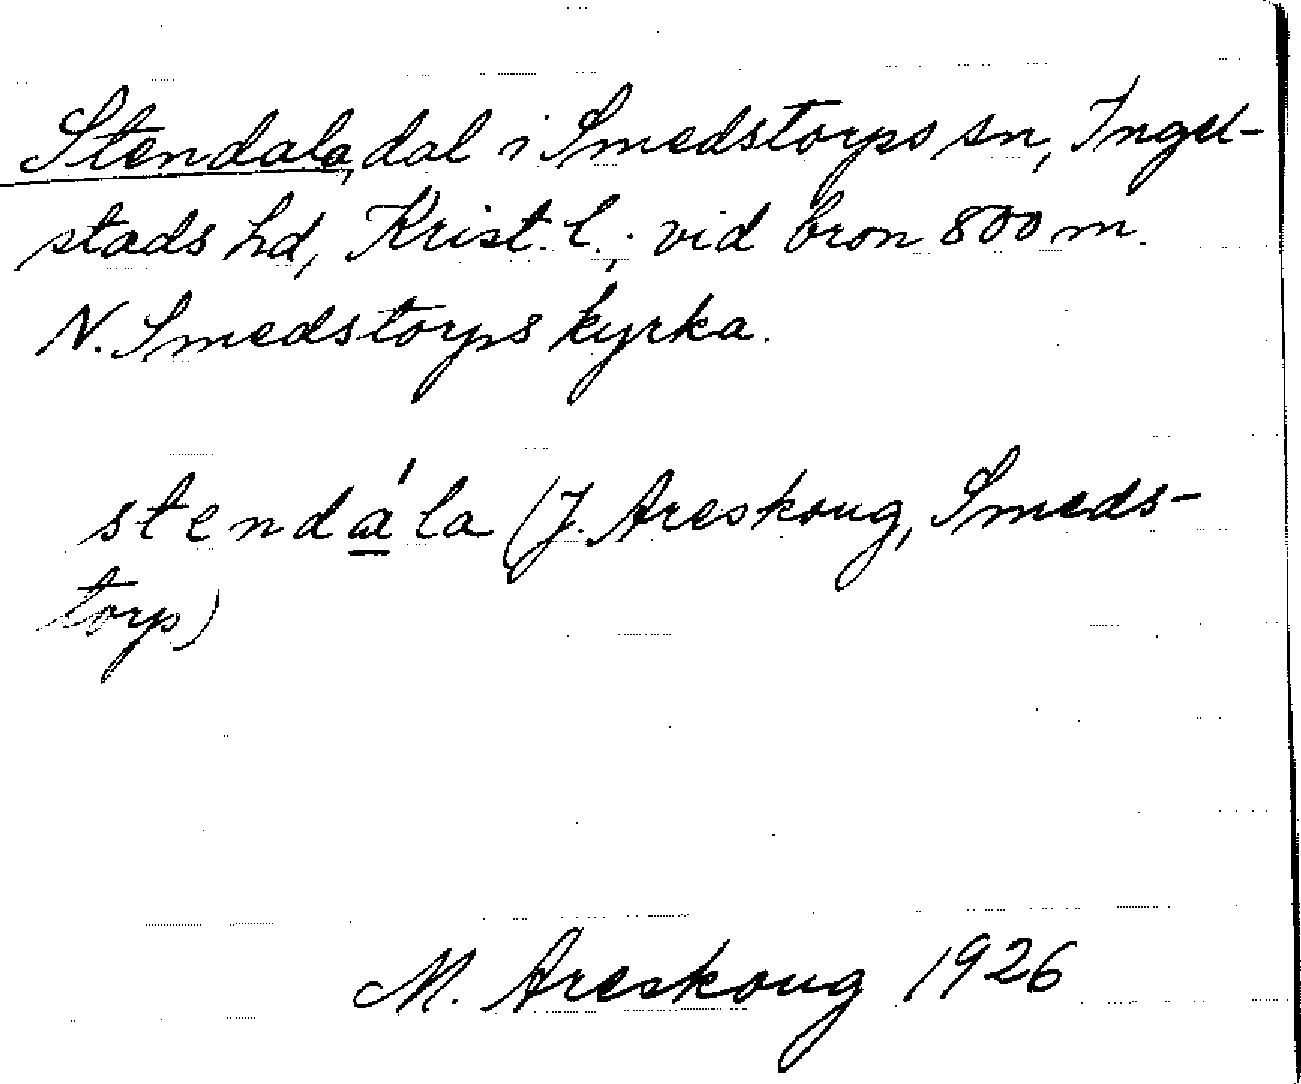 Stendala, dal i Smedstorps sn, Ingel-
stads hd, Krist. l.; vid bron 800 m.
N. Smedstorps kyrka.
stendála (J. Areskoug, Smeds-
torp)
M. Areskoug 1926